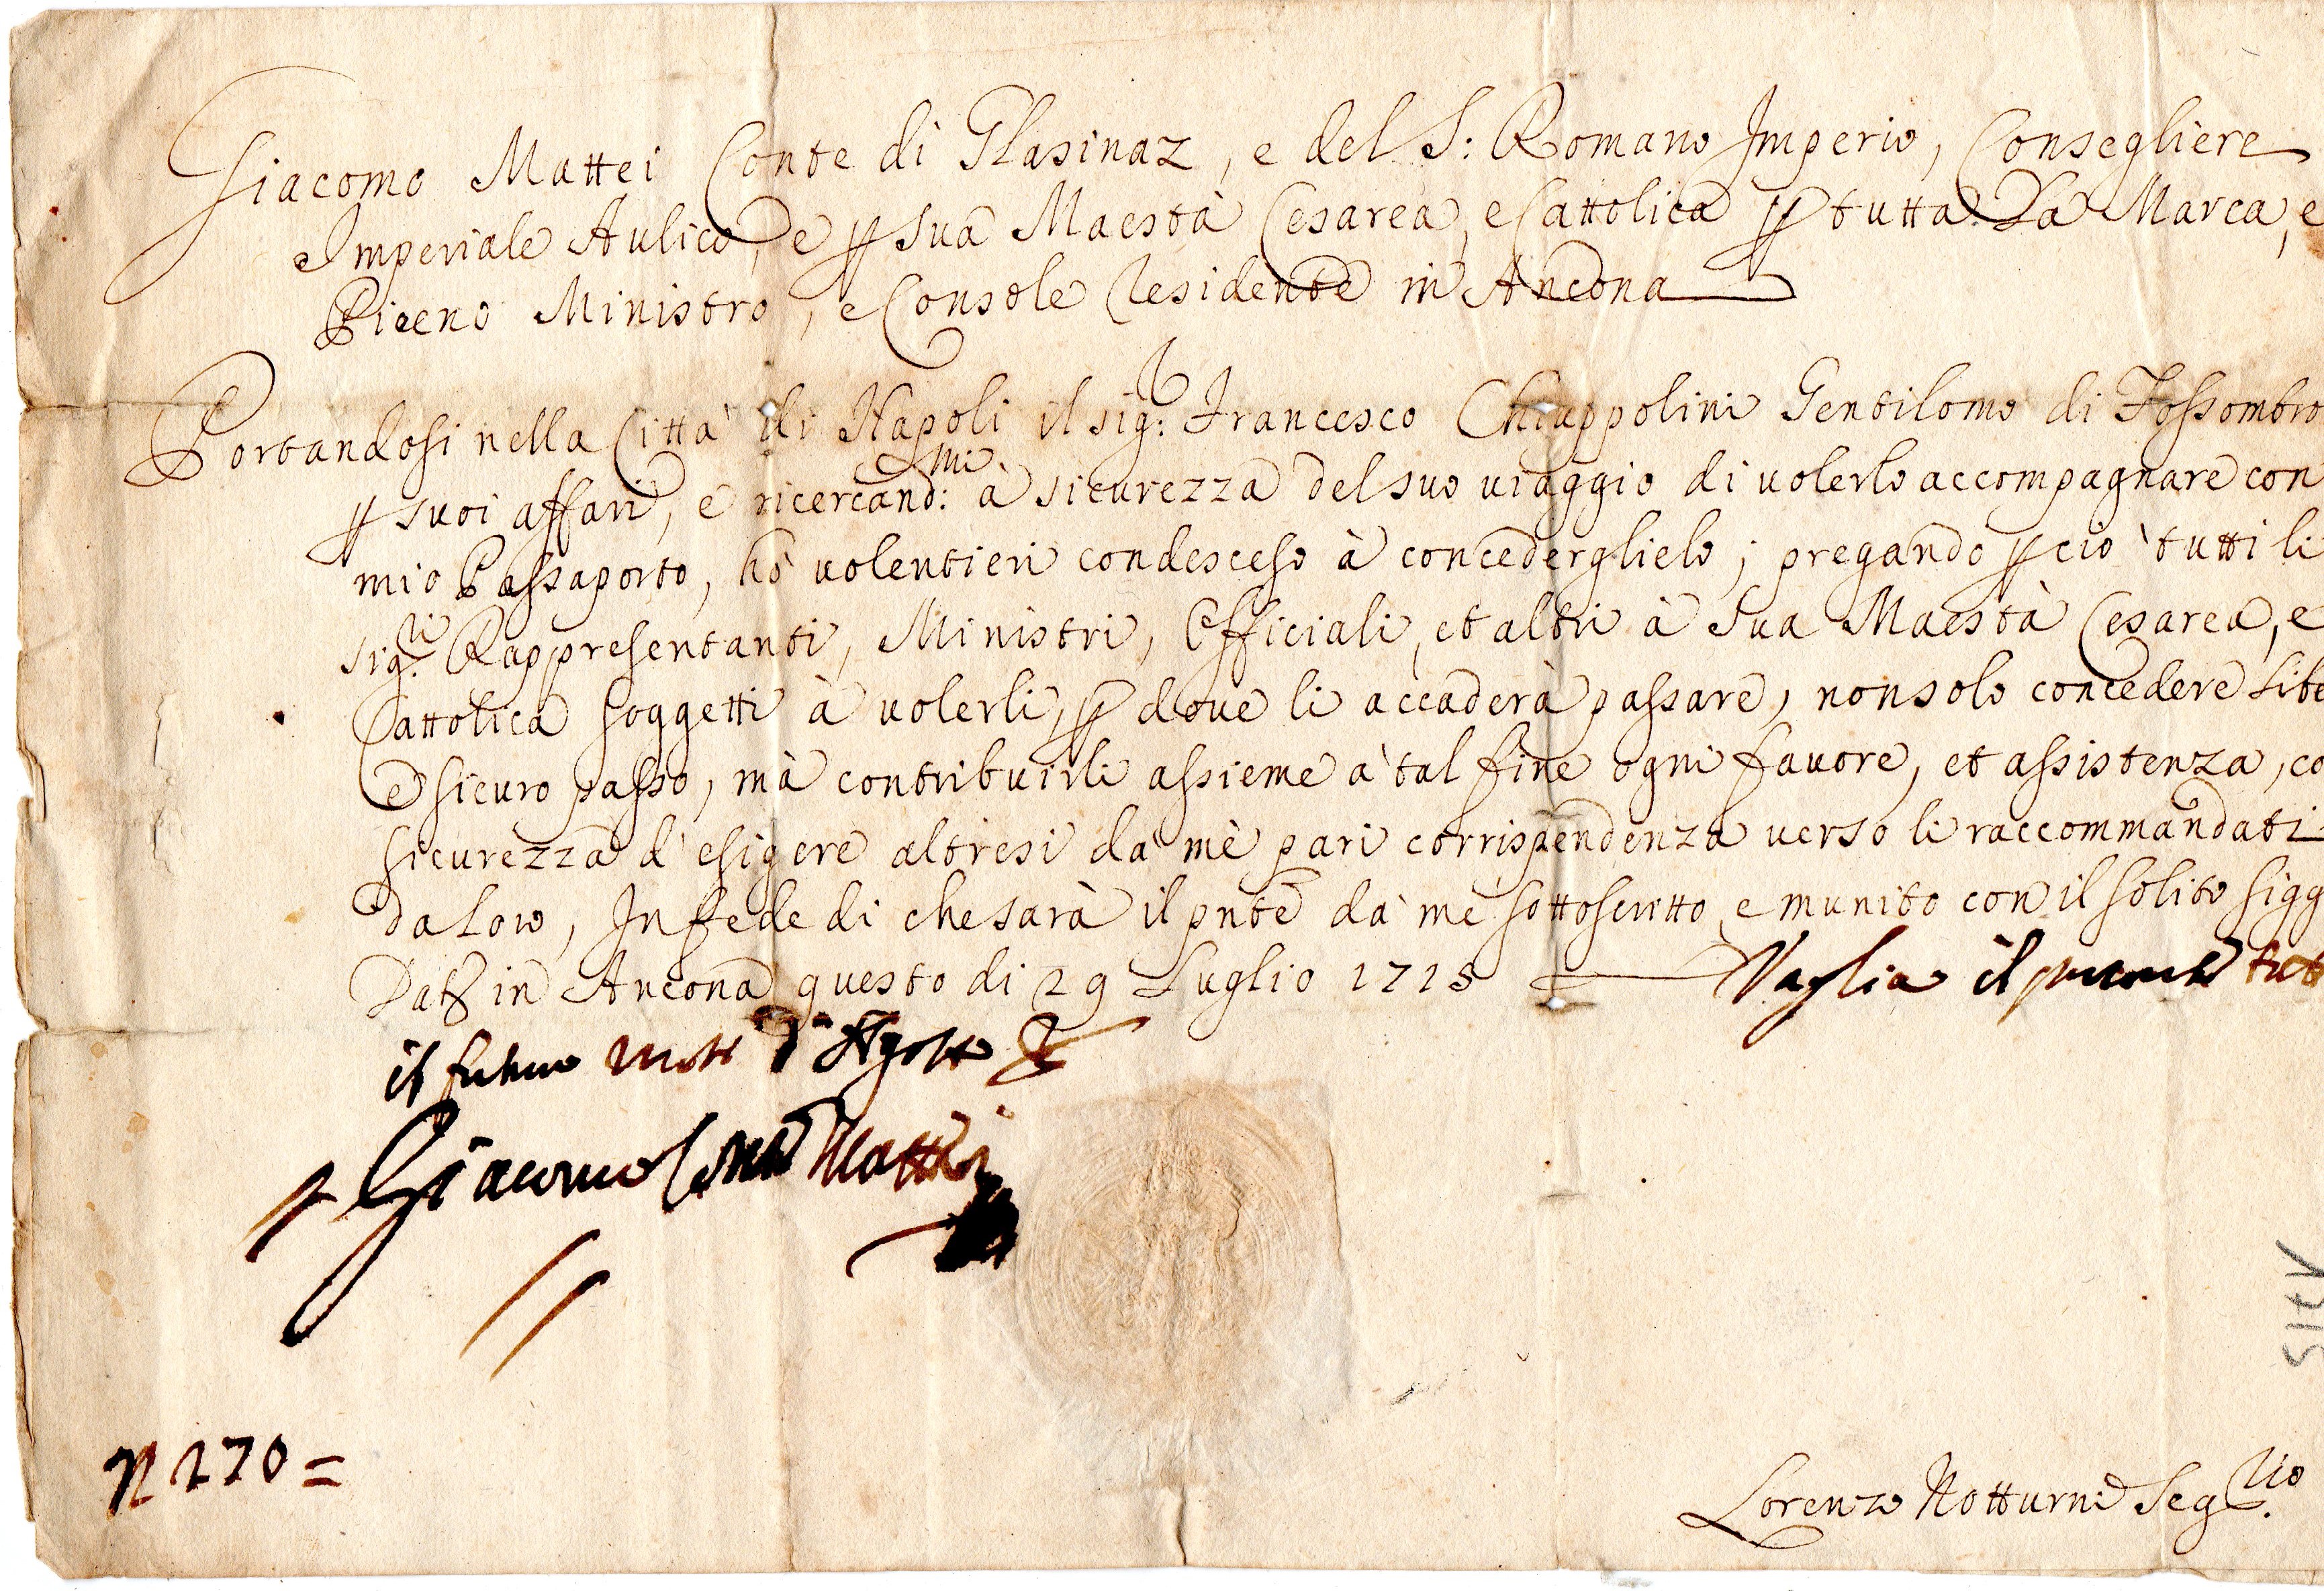 Giacomo Mattei Conte di Glasinaz, e del S: Romano Imperio, Consegliere
Imperiale Aulico, e ꝑ Sua Maestà Cesarea, e Cattolica ꝑ tutta La Marca, e
Piceno Ministro, e Console Residente in Ancona
Portandosi nella Città di Napoli il sig:r Francesco Chiappolini Gentilomo di Fossombro
ꝑ suoi affari, e ricercand:mi à sicurezza del suo viaggio di volerlo accompagnare con
mio Passaporto, hò volentieri condesceso à concederglielo; pregando ꝑciò tutti li
sig:ri Rappresentanti, Ministri, Officiali, et altri à Sua Maestà Cesarea, e
Cattolica soggetti à volerli, ꝑ dove li accaderà passare, non solo concedere Libe
e sicuro passo, mà contribuirli assieme à tal fine ogni favore, et assistenza, co
sicurezza d'esigere altresi da mè pari corrispondenza verso li raccommandati
da Loro, In fede di che sarà il pnte da me sottoscritto, e munito con il solito sigg
Dat in Ancona questo di 29 Luglio 1715 Vaglia il presente tut
il futuro mese d'Agosto
Giacomo Conte Mattei
N 270 =
Lorenzo Notturni Seg:rio
1715